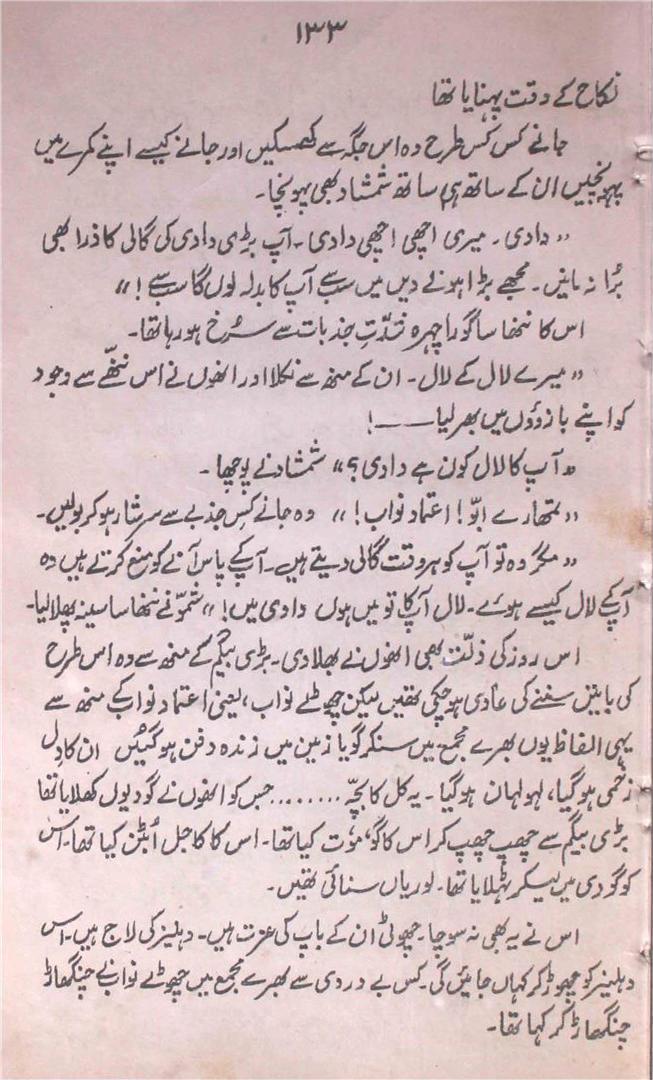 ۱۳۳
نکاح کے وقت پہنایا تھا
جانے کس کس طرح وہ اس جگہ سے کھسکیں اور جانے کیسے اپنے کمرے میں
پہونچیں ان کے ساتھ ہی ساتھ شمشاد بھی پہونچا۔
”دادی۔ میری اچھی اچھی دادی۔ آپ بڑی دادی کی گالی کا ذرا بھی
بُرا نہ مانیں۔ مجھے بڑا ہونے دیں میں سب سے آپ کا بدلہ لوں گا سب سے!“
اس کا ننھا سا گورا چہرہ شدّتِ جذبات سے سُرخ ہو رہا تھا۔
”میرے لال کے لال۔ ان کے منھ سے نکلا اور انھوں نے اس ننھّے سے وجود
کو اپنے بازوؤں میں بھر لیا ——!
”آپ کا لال کون ہے دادی؟“ شمشاد نے پوچھا۔
”تمھارے ابّو! اعتماد نواب!“ وہ جانے کس جذبے سے سرشار ہو کر بولیں۔
”مگر وہ تو آپ کو ہر وقت گالی دیتے ہیں۔ آپکے پاس آنے کو منع کرتے ہیں وہ
آپکے لال کیسے ہوئے۔ لال آپکا تو میں ہوں دادی میں!“ شمّو نے ننھا سا سینہ پھلا لیا۔
اس روز کی ذلّت بھی انھوں نے بھلا دی۔ بڑی بیگم کے منھ سے وہ اس طرح
کی باتیں سننے کی عادی ہو چکی تھیں لیکن چھوٹے نواب، یعنی اعتماد نواب کے منھ سے
یہی الفاظ یوں بھرے مجمع میں سنکر گویا زمین میں زندہ دفن ہو گئیں ان کا دل
زخمی ہو گیا، لہولہان ہو گیا۔ یہ کل کا بچّہ ........ جس کو انھوں نے گودیوں کھلایا تھا
بڑی بیگم سے چھپ چھپ کر اس کا گُو، مُوت کیا تھا۔ اس کا کاجل اُبٹن کیا تھا۔ اس
کو گودی میں لیکر ٹہلایا تھا۔ لوریاں سنائی تھیں۔
اس نے یہ بھی نہ سوچا۔ چھوٹی ان کے باپ کی عزت ہیں۔ دہلیز کی لاج ہیں۔ اس
دہلیز کو چھوڑ کر کہاں جائیں گی۔ کس بے دردی سے بھرے مجمع میں چھوٹے نواب نے چنگھاڑ
چنگھاڑ کر کہا تھا۔